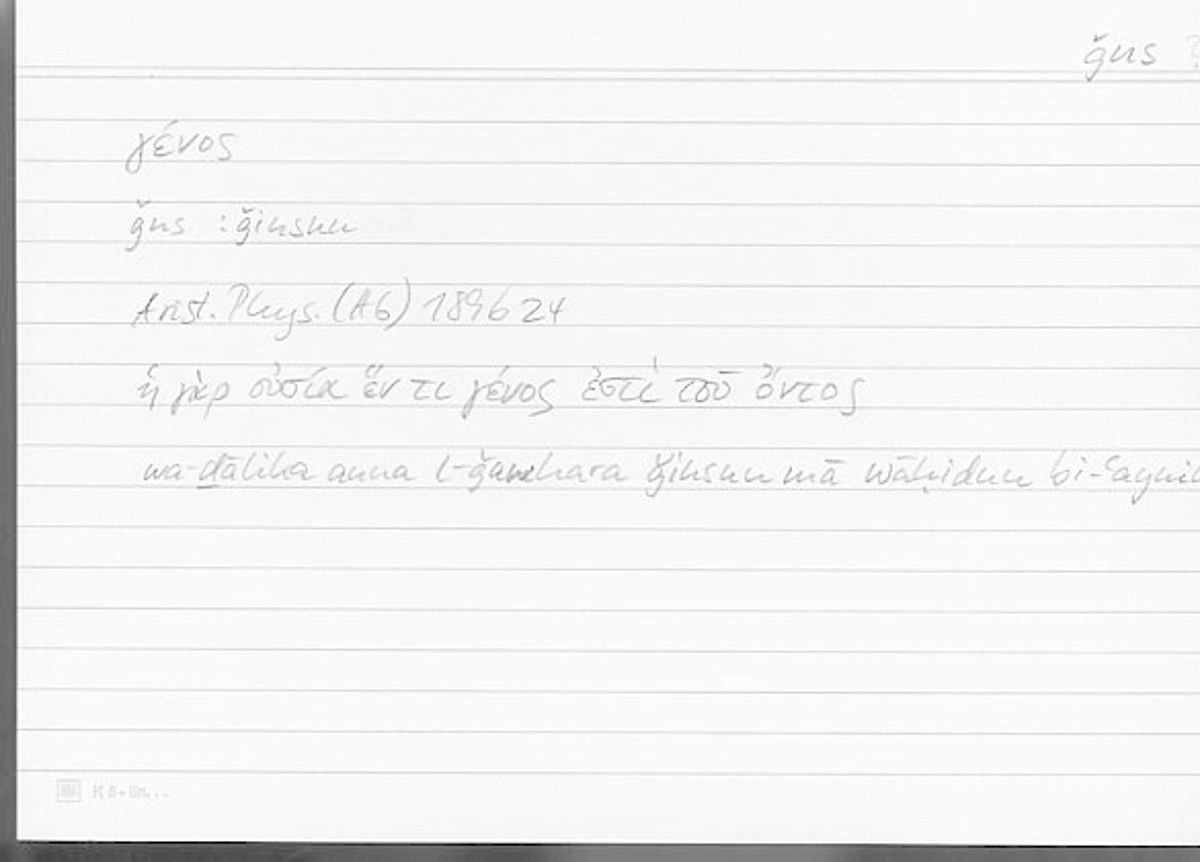 ǧns
γένος
ǧns : ǧinsun
Arist. Phys. (A6) 189b24
ἡ γὰρ οὐσία ἕν τι γένος ἐστὶ τοῦ ὄντος
wa-ḏālika anna l-ǧawhara ǧinsun mā wāḥidun